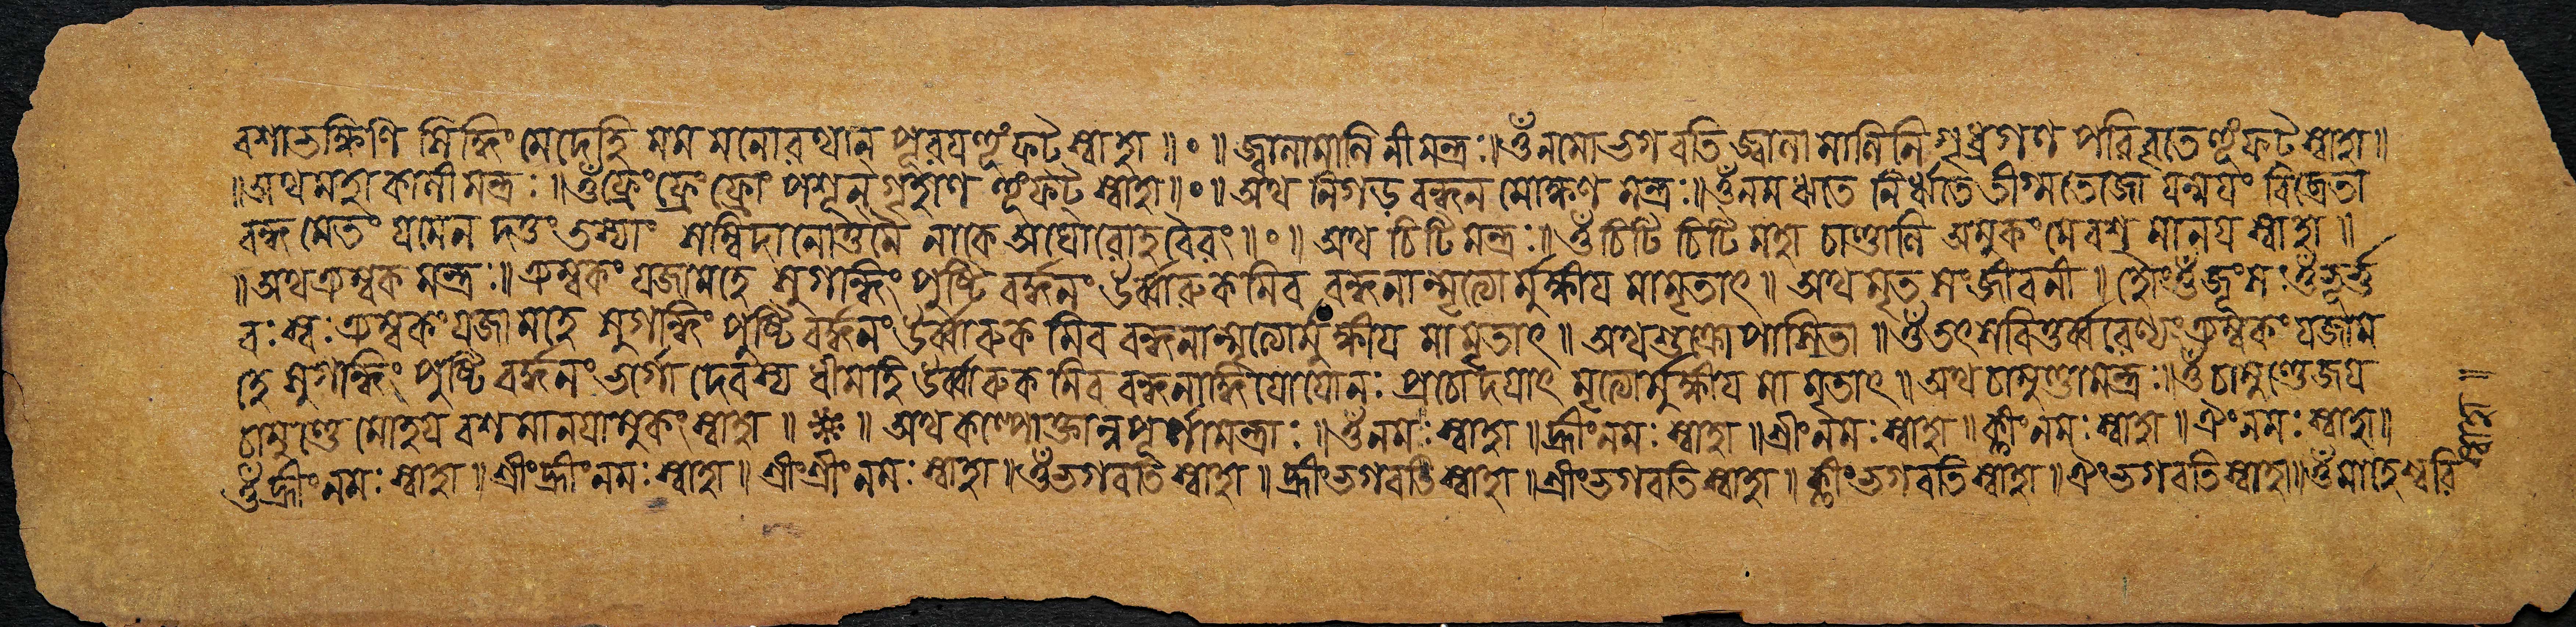 বশাভক্ষিণি সিদ্ধিং মে দেহি মম মনোরথান্ পূরয় হূঁ ফট্ স্বাহা ॥ ০ ॥ জ্বালামালিনীমন্ত্রঃ ॥ ওঁ নমো ভগবতি জ্বালামালিনি গৃধ্রগণ পরিবৃতে হূঁ ফট্ স্বাহা ॥
॥ অথ মহাকালীমন্ত্রঃ ॥ ওঁ ফ্রেং ফ্রেং ক্রোং পশূন্ গৃহাণ হূং ফট্ স্বাহা ॥ ০ ॥ অথ নিগড়বন্ধন মোক্ষণ মন্ত্রঃ ॥ ওঁ নম ঋতে নিরৃতে তীগ্মতেজো যন্ময়ং বিচ্রেতা
বন্ধমেতং যমেন দত্তং তস্যাং সম্বিদানোত্তমে নাকে অধোরোহবৈরং ॥ ০ ॥ অথ চিটিমন্ত্রঃ ॥ ওঁ চিটি চিটি মহাচাণ্ডালি অমুকং মে বশমানয় স্বাহা ॥
॥ অথ ত্র্যম্বক মন্ত্রঃ ॥ ত্র্যম্বকং যজামহে সুগন্ধিং পুষ্টিবর্দ্ধনং উর্ব্বারুকমিব বন্ধনান্মৃত্যোর্মুক্ষীয় মামৃতাৎ ॥ অথ মৃতসংজীবনী ॥ হৌং ওঁ জূং সঃ ওঁ ভূর্ভু
বঃ স্বঃ ত্র্যম্বকং যজামহে সুগন্ধিং পুষ্টিবর্দ্ধনং উর্ব্বারুকমিব বন্ধনান্মৃত্যোর্মুক্ষীয় মামৃতাৎ ॥ অথ শুক্রোপাসিতা ॥ ওঁ তৎসবিতুর্ব্বরেণ্যং ত্র্যম্বকং যজাম
হে সুগন্ধিং পুষ্টিবর্দ্ধনং ভর্গো দেবস্য ধীমহি উর্ব্বারুকমিব বন্ধনাদ্ধিয়োয়োনঃ প্রচোদয়াৎ মৃত্যোর্মুক্ষীয় মামৃতাৎ ॥ অথ চামুণ্ডামন্ত্রঃ ॥ ওঁ চামুণ্ডে জয়
চামুণ্ডে মোহয় বশমানয়ামুকং স্বাহা ॥ অথ কল্পোক্তান্নপূর্ণামন্ত্রাঃ ॥ ওঁ নমঃ স্বাহা ॥ হ্রীং নমঃ স্বাহা ॥ শ্রীং নমঃ স্বাহা ॥ ক্লীং নমঃ স্বাহা ॥ ঐং নমঃ স্বাহা ॥
ওঁ হ্রীং নমঃ স্বাহা ॥ শ্রীং হ্রীং নমঃ স্বাহা ॥ শ্রীং শ্রীং নমঃ স্বাহা ॥ ওঁ ভগবতি স্বাহা ॥ হ্রীং ভগবতি স্বাহা ॥ শ্রীং ভগবতি স্বাহা ॥ ক্লীং ভগবতি স্বাহা ॥ ঐং ভগবতি স্বাহা ॥ ওঁ মাহেশ্বরি